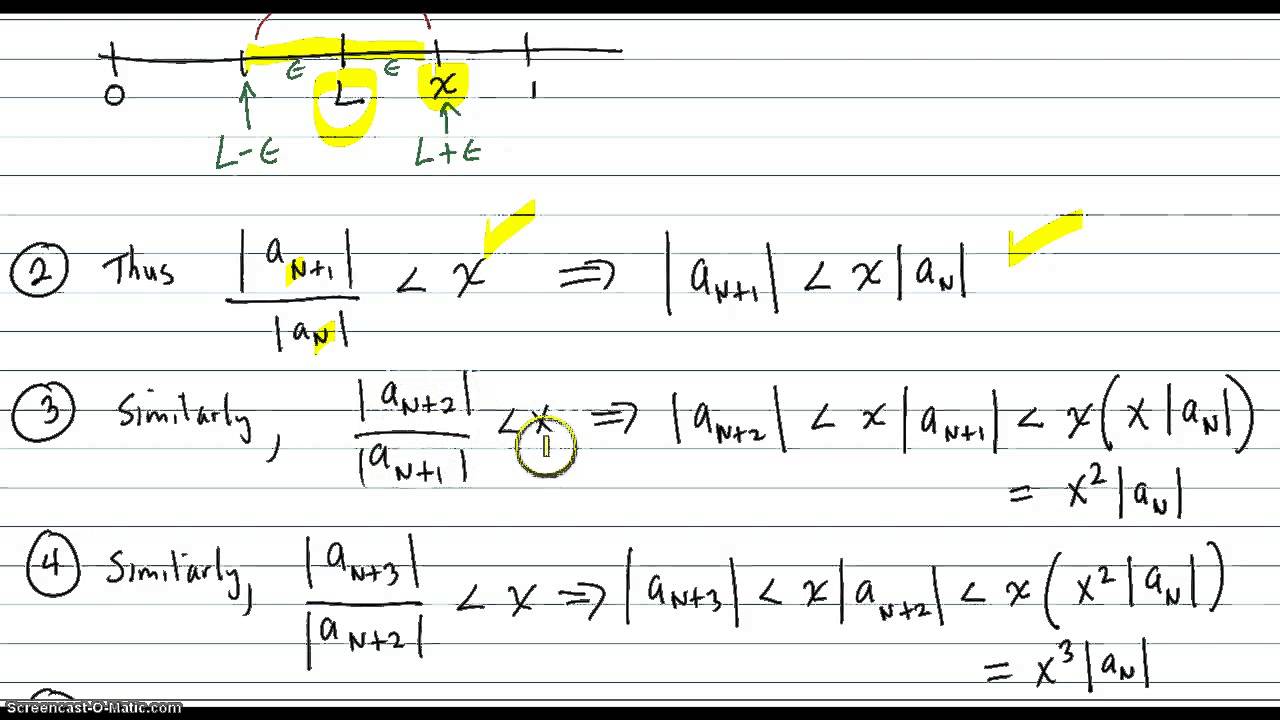 ϵ ϵ
0 L x 1
L-ϵ L+ϵ
② Thus |a_{N+1}| / |a_N| < x ⟹ |a_{N+1}| < x|a_N|
③ Similarly, |a_{N+2}| / |a_{N+1}| < x ⟹ |a_{N+2}| < x|a_{N+1}| < x(x|a_N|)
= x²|a_N|
④ Similarly, |a_{N+3}| / |a_{N+2}| < x ⟹ |a_{N+3}| < x|a_{N+2}| < x(x²|a_N|)
= x³|a_N|
Screencast-O-Matic.com